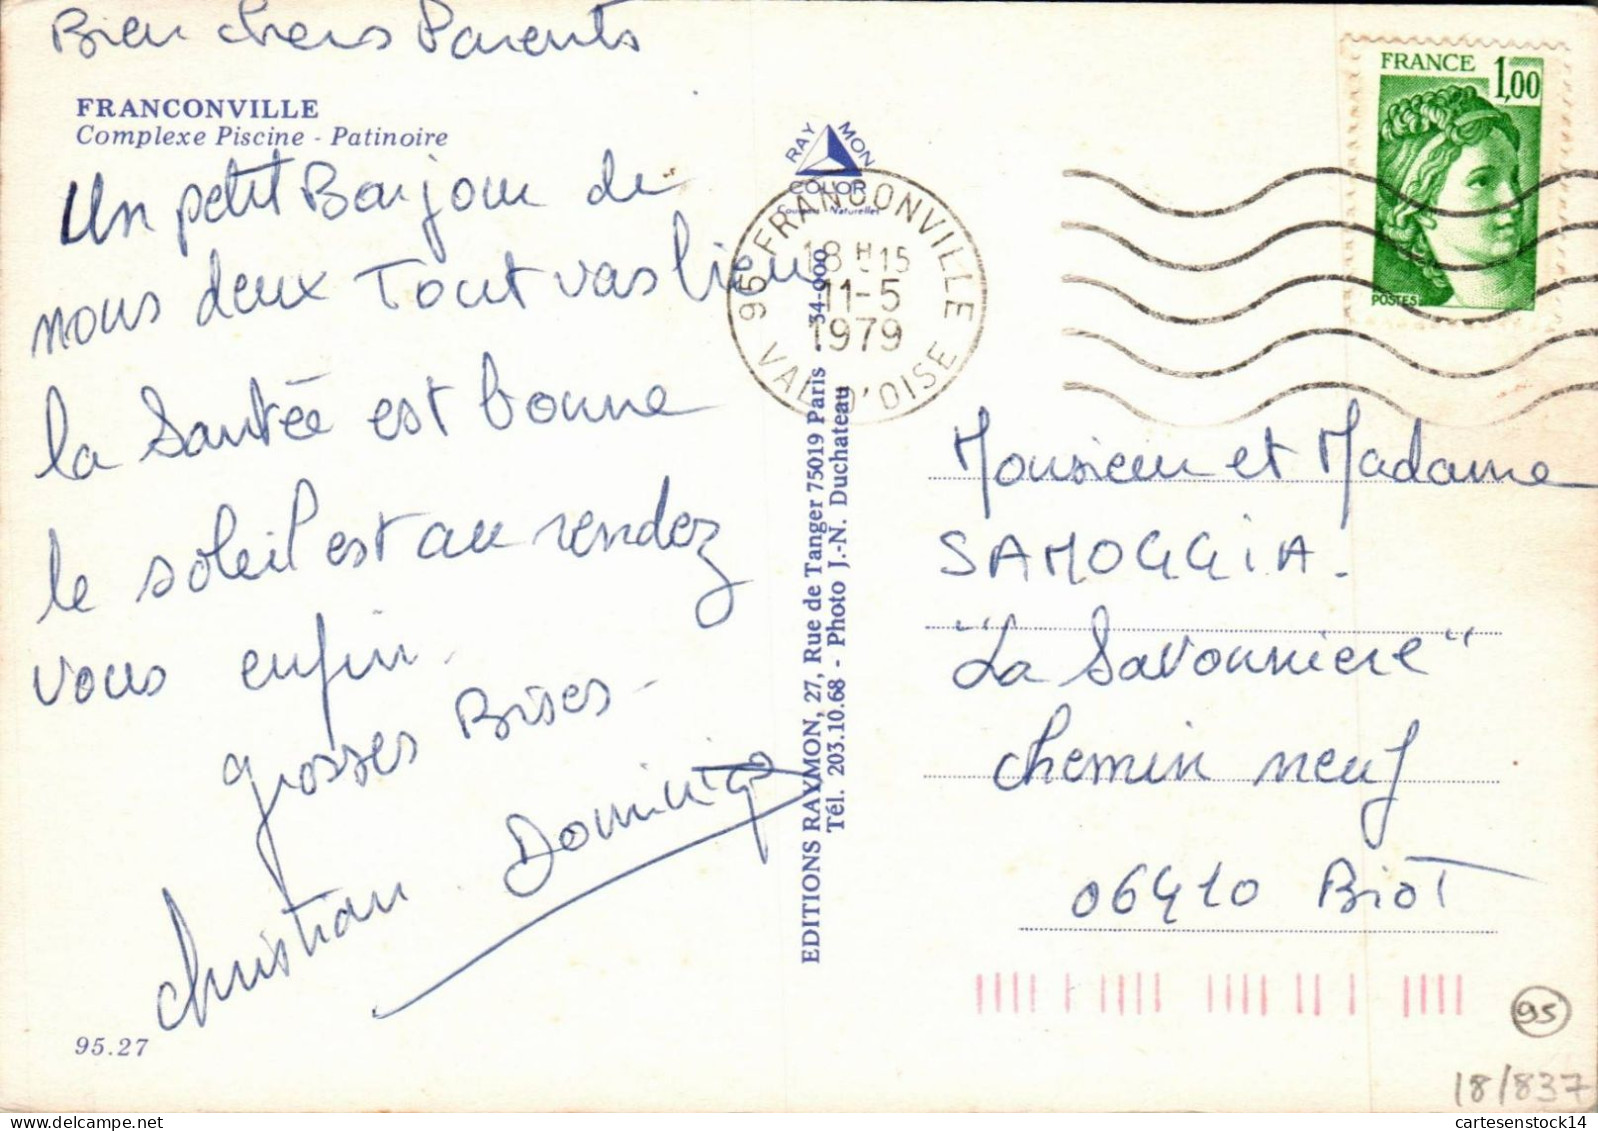 Bien chers Parents
FRANCONVILLE
Complexe Piscine - Patinoire
Un petit Bonjour de
nous deux Tout vas bien
la Santée est bonne
le soleil est au rendez
vous enfin.
grosses Bises -
Christian Dominiq
95.27
RAYMON
COLOR
Naturelles
95 FRANCONVILLE
18H15
11-5
1979
VAL D'OISE
EDITIONS RAYMON, 27, Rue de Tanger 75019 Paris 34-900
Tél. 203.10.68 - Photo J.-N. Duchateau
FRANCE 1,00
POSTES
Monsieur et Madame
SAMOGGIA.
"La Savonniere"
chemin neuf
06410 BioT
95
18/837
cartesenstock14